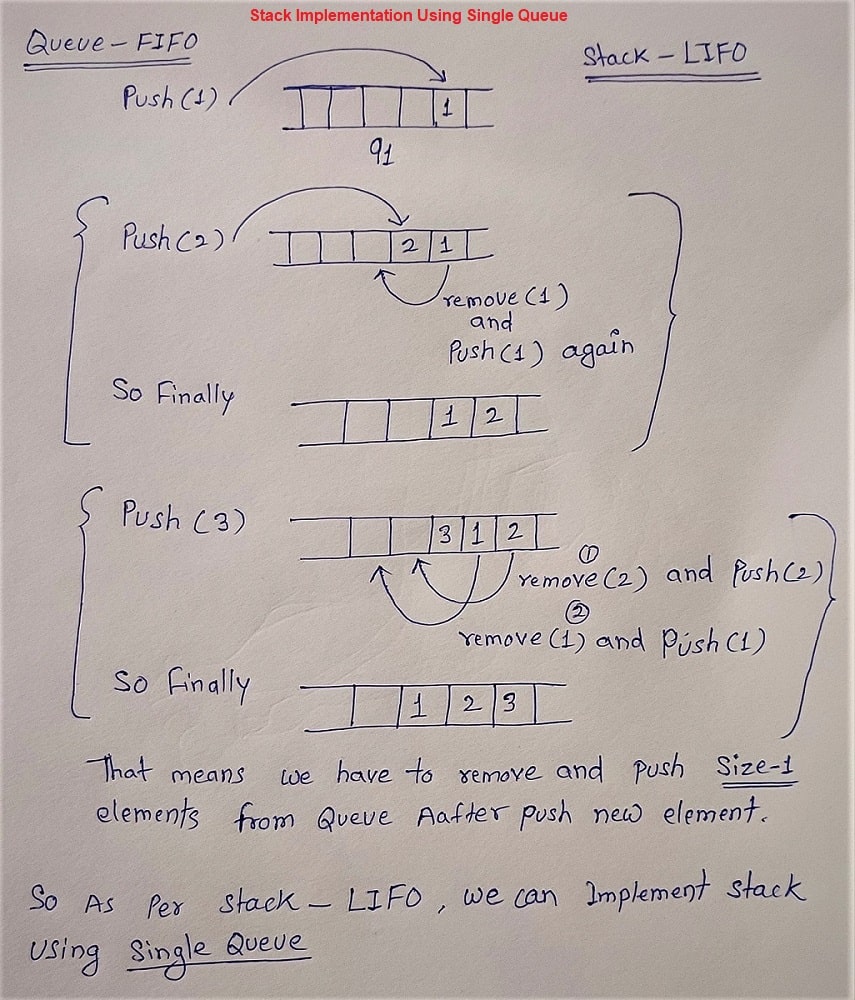 Stack Implementation Using Single Queue
Queue - FIFO
Stack - LIFO
Push (1)
1
q1
Push (2)
2 1
remove (1)
and
Push (1) again
So Finally
1 2
Push (3)
3 1 2
① remove (2) and Push (2)
② remove (1) and Push (1)
So Finally
1 2 3
That means we have to remove and push Size-1
elements from Queue Aafter push new element.
So As Per Stack - LIFO, we can Implement stack
Using Single Queue